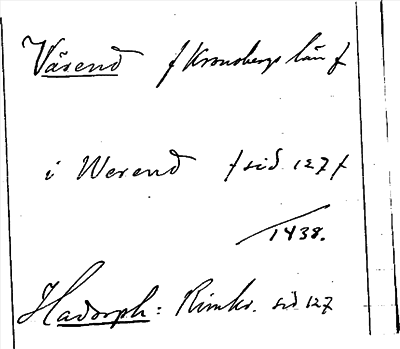 Värend / Kronobergs län /
i Werend / sid 127 /
1438.
Hadorph: Rimkr. sid 127